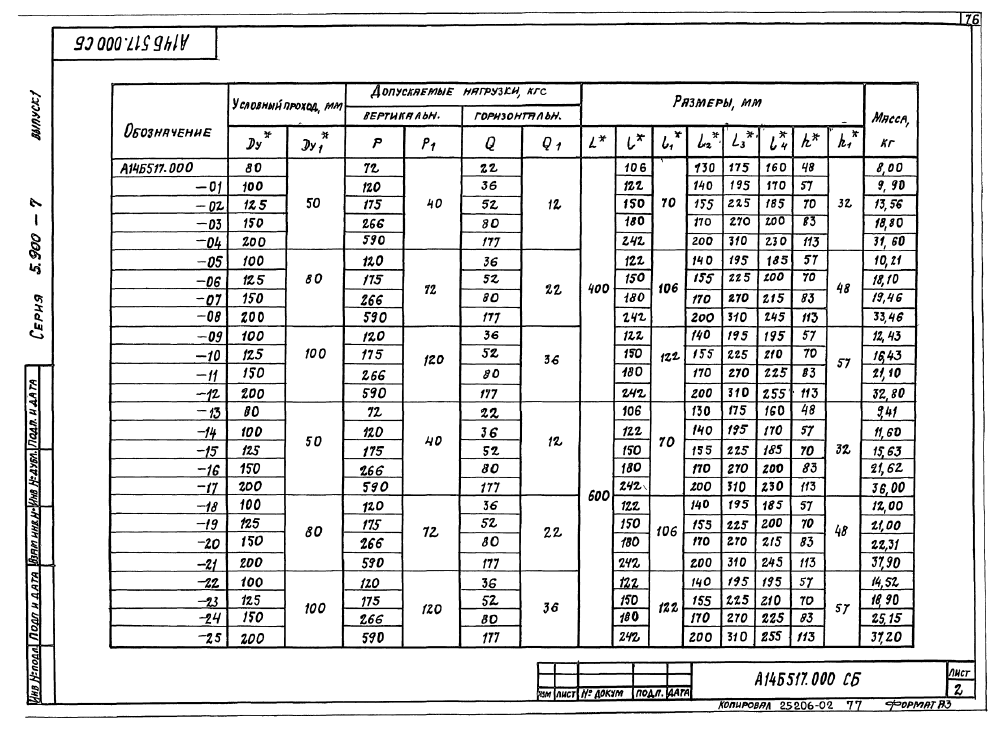 76
А14Б517.000 СБ
Серия 5.900 - 7 выпуск 1
Обозначение Условный проход, мм Допускаемые нагрузки, кгс Размеры, мм Масса, кг
вертикальн. горизонтальн.
Dу* Dу1* P P1 Q Q1 L* l* l1* l2* l3* l4* h* h1*
А14Б517.000 80 50 72 40 22 12 400 106 70 130 175 160 48 32 8,00
-01 100 120 36 122 140 195 170 57 9,90
-02 125 175 52 150 155 225 185 70 13,56
-03 150 266 80 180 170 270 200 83 18,80
-04 200 590 177 242 200 310 230 113 31,60
-05 100 80 120 72 36 22 122 106 140 195 185 57 48 10,21
-06 125 175 52 150 155 225 200 70 18,10
-07 150 266 80 180 170 270 215 83 19,46
-08 200 590 177 242 200 310 245 113 33,46
-09 100 100 120 120 36 36 122 122 140 195 195 57 57 12,43
-10 125 175 52 150 155 225 210 70 16,43
-11 150 266 80 180 170 270 225 83 21,10
-12 200 590 177 242 200 310 255 113 32,80
-13 80 50 72 40 22 12 600 106 70 130 175 160 48 32 9,41
-14 100 120 36 122 140 195 170 57 11,60
-15 125 175 52 150 155 225 185 70 15,63
-16 150 266 80 180 170 270 200 83 21,62
-17 200 590 177 242 200 310 230 113 36,00
-18 100 80 120 72 36 22 122 106 140 195 185 57 48 12,00
-19 125 175 52 150 155 225 200 70 21,00
-20 150 266 80 180 170 270 215 83 22,31
-21 200 590 177 242 200 310 245 113 37,90
-22 100 100 120 120 36 36 122 122 140 195 195 57 57 14,52
-23 125 175 52 150 155 225 210 70 18,90
-24 150 266 80 180 170 270 225 83 25,15
-25 200 590 177 242 200 310 255 113 37,20
Инв № подл. Подп и дата Взам инв. № Инв № дубл. Подп. и дата
Изм Лист № докум Подп. Дата
А14Б517.000 СБ
Лист
2
Копировал 25206-02 77 Формат А3